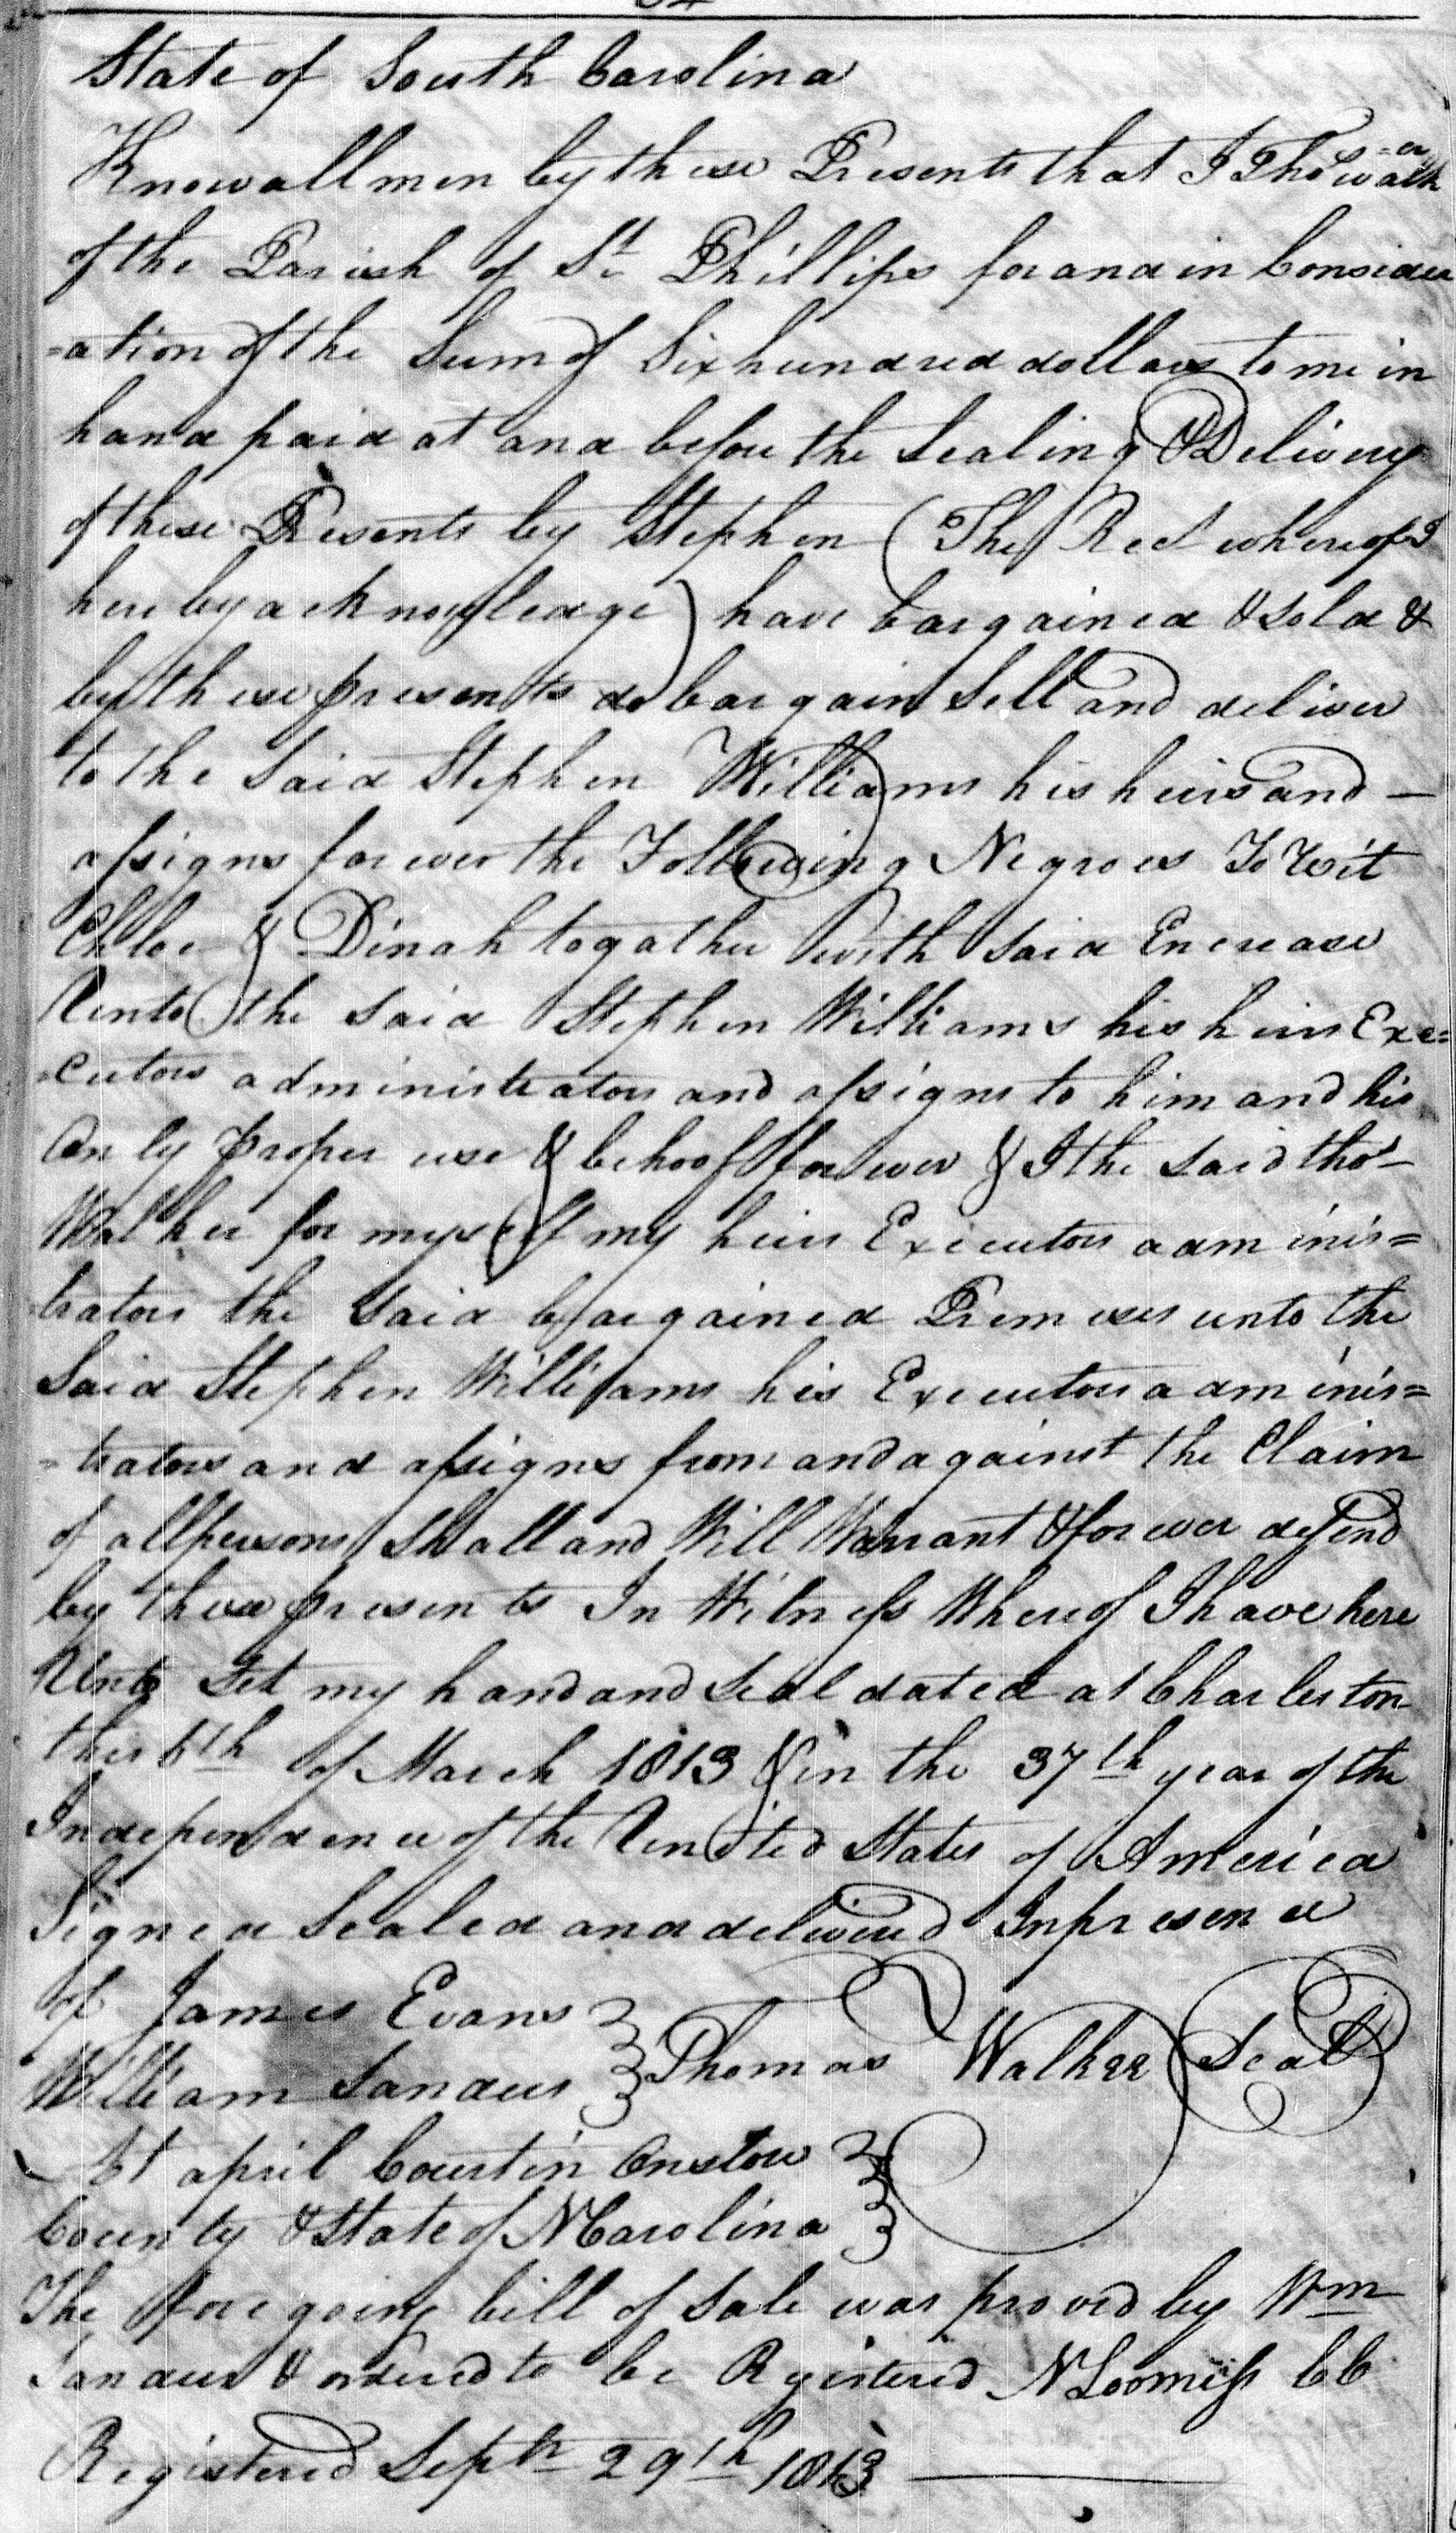 State of South Carolina
Know all men by these Presents that I Thos Walker
of the Parish of St Phillips for and in Consider
=ation of the Sum of Six hundred dollars to me in
hand paid at and before the Sealing & Delivery
of these Presents by Stephen (The Rect whereof I
hereby acknowledge) have bargained & sold &
by these presents do bargain Sell and deliver
to the Said Stephen Williams his heirs and —
assigns forever the Following Negroes To Wit
Chloe & Dinah togather with said Encrease
Unto the said Stephen Williams his heirs Exe=
=cutors administrators and assigns to him and his
Only proper use & behoof forever & I the said thos
Walker for myself my heirs Executors adminis=
trators the said bargained Premises unto the
Said Stephen Williams his Executors adminis=
=trators and assigns from and against the Claim
of all persons Shall and Will Warrant & forever defend
by these presents In Witness Whereof I have here
Unto Set my hand and Seal dated at Charleston
this 6th of March 1813 & in the 37th year of the
Independence of the United States of America
Signed Sealed and delivered In presence
of James Evans
William Sanders Thomas Walker Seal
At april Court in Onslow
County & State of N Carolina
The fore going bill of Sale was proved by Wm
Sanders & ordered to be Registered N Loomiss CC
Registered Septr 29th 1813